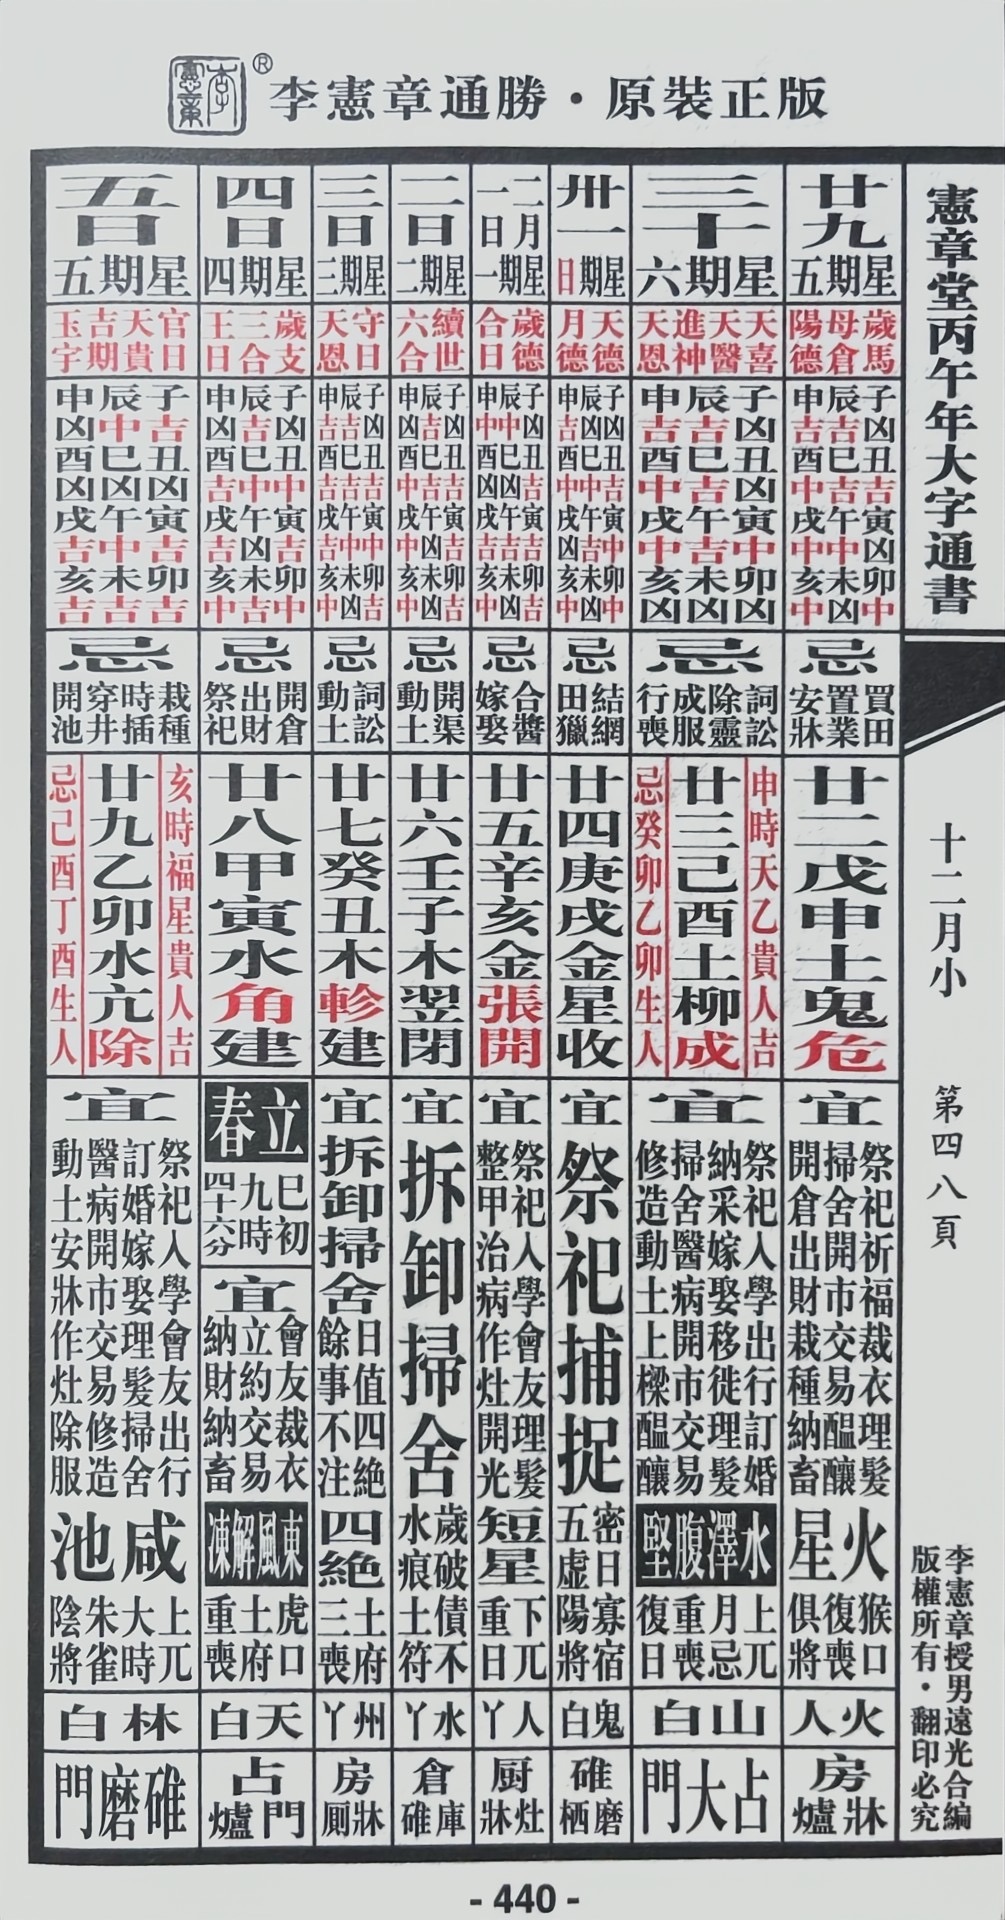 李憲章
®
李憲章通勝・原裝正版
憲章堂丙午年大字通書
十二月小
第四八頁
李憲章授男遠光合編
版權所有・翻印必究
廿九
星期五
歲馬
母倉
陽德
子凶丑吉寅凶卯中
辰吉巳吉午中未凶
申吉酉中戌中亥中
忌
買田
置業
安牀
廿二戊申土鬼危
宜
祭祀祈福裁衣理髮
掃舍開市交易醞釀
開倉出財栽種納畜
火星
猴口
復喪
俱將
火人
房
牀爐
三十
星期六
天喜
天醫
進神
天恩
子凶丑凶寅中卯凶
辰吉巳吉午吉未凶
申吉酉中戌中亥凶
忌
詞訟
除靈
成服
行喪
申時天乙貴人吉
廿三己酉土柳成
忌癸卯乙卯生人
宜
祭祀入學出行訂婚
納采嫁娶移徙理髮
掃舍醫病開市交易
修造動土上樑醞釀
水澤腹堅
上兀
月忌
重喪
復日
山白
占大門
卅一
星期日
天德
月德
子凶丑吉寅中卯中
辰凶巳中午吉未凶
申吉酉中戌凶亥中
忌
結網
田獵
廿四庚戌金星收
宜
祭祀捕捉
密日寡宿
五虛陽將
鬼白
碓
磨栖
二月
一日
星期一
歲德
合日
子凶丑吉寅吉卯吉
辰中巳凶午吉未凶
申中酉凶戌吉亥中
忌
合醬
嫁娶
廿五辛亥金張開
宜
祭祀入學會友理髮
整甲治病作灶開光
短星
下兀
重日
人丫
厨
灶牀
二日
星期二
續世
六合
子凶丑吉寅吉卯吉
辰吉巳吉午凶未凶
申凶酉中戌中亥中
忌
開渠
動土
廿六壬子木翌閉
宜
拆卸掃舍
歲破債不
水痕土符
水丫
倉
庫碓
三日
星期三
守日
天恩
子凶丑吉寅中卯吉
辰吉巳吉午中未凶
申吉酉吉戌吉亥中
忌
詞訟
動土
廿七癸丑木軫建
宜
拆卸掃舍
日值四絶
餘事不注
四絶
土府
三喪
州丫
房
牀厠
四日
星期四
歲支
三合
王日
子凶丑中寅吉卯中
辰吉巳中午凶未吉
申凶酉吉戌吉亥中
忌
開倉
出財
祭祀
廿八甲寅水角建
立春
巳初
九時
四十六分
宜
會友裁衣
立約交易
納財納畜
東風解凍
虎口
土府
重喪
天白
占
門爐
五日
星期五
官日
天貴
吉期
玉宇
子吉丑凶寅吉卯吉
辰中巳凶午中未吉
申凶酉凶戌吉亥吉
忌
栽種
時插
穿井
開池
亥時福星貴人吉
廿九乙卯水亢除
忌己酉丁酉生人
宜
祭祀入學會友出行
訂婚嫁娶理髮掃舍
醫病開市交易修造
動土安牀作灶除服
咸池
上兀
大時
朱雀
陰將
林白
碓磨門
- 440 -